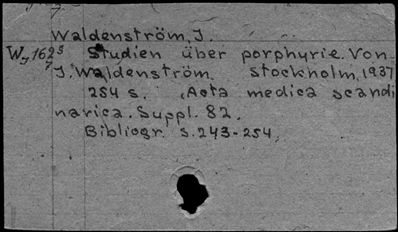 Waldenström, J.
Studien über porphyrie. Von
J. Waldenström. Stockholm, 1937
254 s. (Acta medica scandi
narica. Suppl. 82.
Bibliogr. s. 243-254.